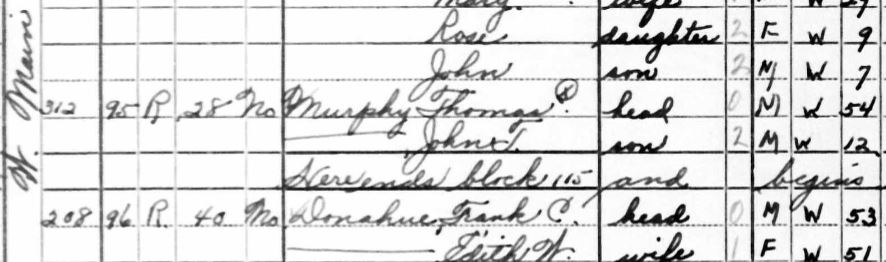 Mary wife W 29
Rose daughter 2 F W 9
John son 2 M W 7
312 95 R 28 No Murphy Thomas head 0 M W 54
John T. son 2 M W 12
Here ends block 115 and begins
208 96 R. 40 No Donahue, Frank C. head 0 M W 53
Edith W. wife 1 F W 51
W. Main